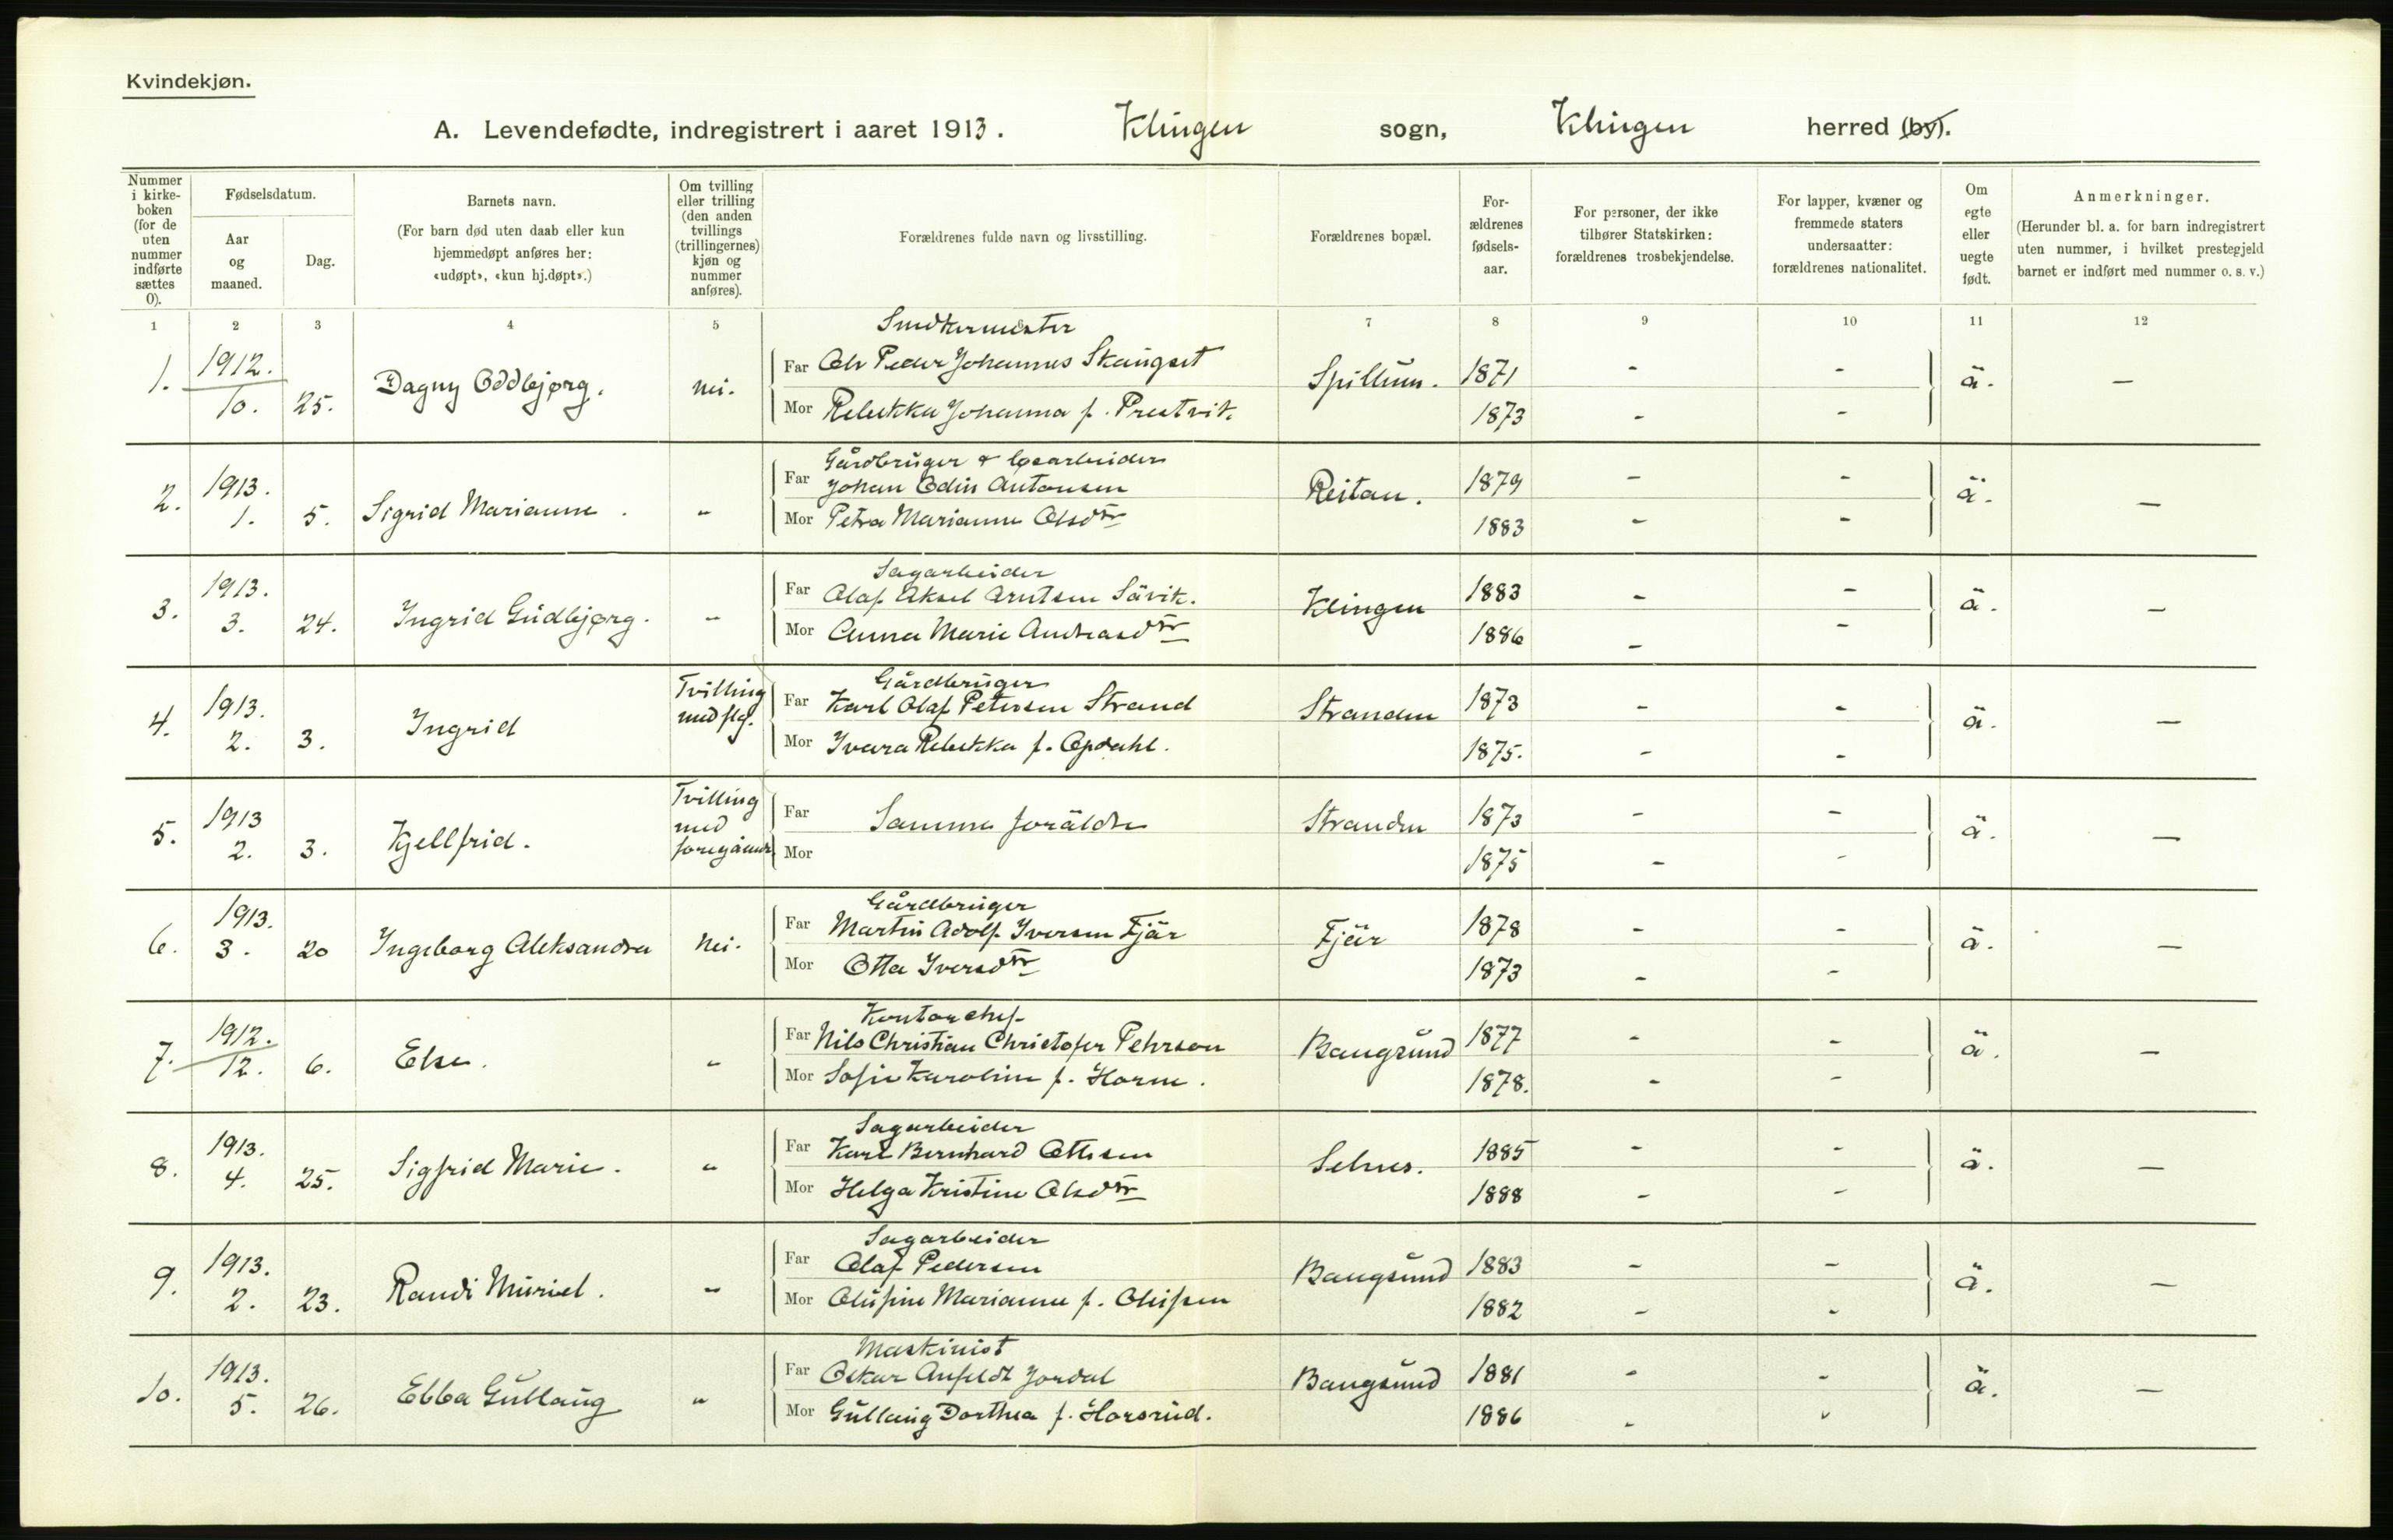 Kvindekjøn.
A. Levendefødte, indregistrert i aaret 1913. Klingen sogn, Klingen herred (by).
Nummer i kirke-boken (for de uten nummer indførte sættes 0).
Fødselsdatum.
Aar og maaned.
Dag.
Barnets navn.
(For barn død uten daab eller kun hjemmedøpt anføres her: «udøpt», «kun hj.døpt».)
Om tvilling eller trilling (den anden tvillings (trillingernes) kjøn og nummer anføres).
Forældrenes fulde navn og livsstilling.
Forældrenes bopæl.
For-ældrenes fødsels-aar.
For personer, der ikke tilhører Statskirken: forældrenes trosbekjendelse.
For lapper, kvæner og fremmede staters undersaatter: forældrenes nationalitet.
Om egte eller uegte født.
Anmerkninger.
(Herunder bl. a. for barn indregistrert uten nummer, i hvilket prestegjeld barnet er indført med nummer o. s. v.)
1 2 3 4 5 7 8 9 10 11 12
Smedkermester
1. 1912. Far Ole Peder Johannes Skaugset 1871 - -
10. 25. Dagny Oddbjørg. nei. Spillum. ä. —
Mor Rebekka Johanna f. Prestvik. 1873 - -
Gårdbruger & løsarbeider
2. 1913. Far Johan Odin Antonsen 1879 - -
1. 5. Sigrid Marianne. " Reitan. ä. —
Mor Petra Marianne Olsdtr 1883 - -
Sagarbeider
3. 1913. Far Olaf Aksel Arntsen Sävik. 1883 - -
3. 24. Ingrid Gudbjørg. " Klingen ä. —
Mor Anna Marie Andreasdtr 1886 - -
Gårdbruger
4. 1913. Tvilling med flg. Far Karl Olaf Petersen Strand 1873 - -
2. 3. Ingrid Stranden ä. —
Mor Ivara Rebekka f. Opdahl. 1875. - -
5. 1913 Tvilling med foregående Far Samme foräldre 1873 - -
2. 3. Kjellfrid. Stranden ä. —
Mor 1875 - -
Gårdbruger
6. 1913. Far Martin Adolf Iversen Fjär 1878 - -
3. 20 Ingeborg Aleksandra Nei. Fjär ä. —
Mor Otta Iversdtr 1873 - -
Kontorchef
7. 1912. Far Nils Christian Christofer Pehrson 1877 - -
12. 6. Else. " Bangsund ä. —
Mor Sofie Karoline f. Horne. 1878. - -
Sagarbeider
8. 1913. Far Karl Bernhard Ottesen 1885 - -
4. 25. Sigfrid Marie. " Selnes. ä. —
Mor Helga Kristine Olsdtr 1888 - -
Sagarbeider
9. 1913. Far Olaf Pedersen 1883 - -
2. 23. Randi Muriel. " Bangsund ä. —
Mor Olufine Marianne f. Olufsen 1882 - -
Maskinist
10. 1913. Far Oskar Anfeldt Jordal 1881 - -
5. 26. Ebba Gullaug " Bangsund ä. —
Mor Gullaug Dorthea f. Horsrud. 1886 - -